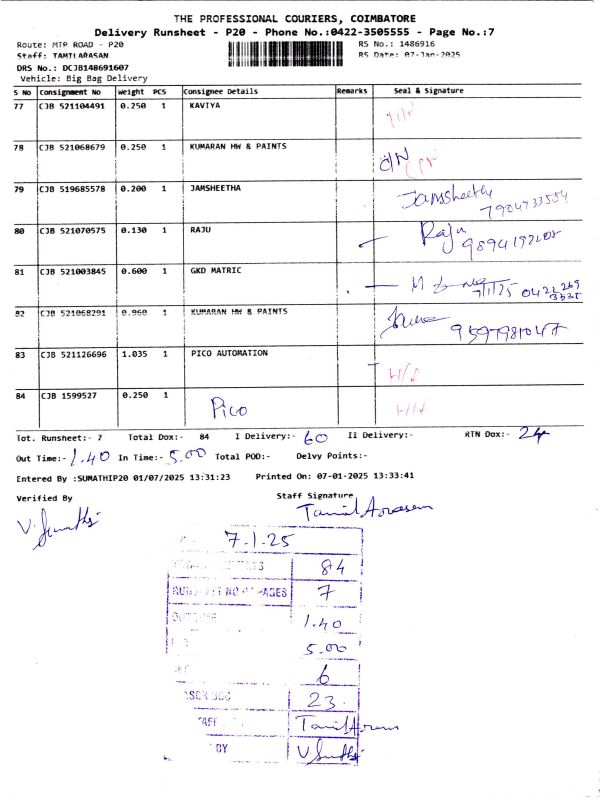 THE PROFESSIONAL COURIERS, COIMBATORE
Delivery Runsheet - P20 - Phone No.:0422-3505555 - Page No.:7
Route: MTP ROAD - P20 RS No.: 1486916
Staff: TAMILARASAN RS Date: 07-Jan-2025
DRS No.: DCJB148691607
Vehicle: Big Bag Delivery
S No Consignment No Weight PCS Consignee Details Remarks Seal & Signature
77 CJB 521104491 0.250 1 KAVIYA
78 CJB 521068679 0.250 1 KUMARAN HW & PAINTS
79 CJB 519685578 0.200 1 JAMSHEETHA Jamsheetha
80 CJB 521070575 0.130 1 RAJU Raju
81 CJB 521003845 0.600 1 GKD MATRIC
82 CJB 521068291 0.960 1 KUMARAN HW & PAINTS
83 CJB 521126696 1.035 1 PICO AUTOMATION
84 CJB 1599527 0.250 1 Pico
Tot. Runsheet:- 7 Total Dox:- 84 I Delivery:- 60 II Delivery:- RTN Dox:- 24
Out Time:- 1.40 In Time:- 5.00 Total POD:- Delvy Points:-
Entered By :SUMATHIP20 01/07/2025 13:31:23 Printed On: 07-01-2025 13:33:41
Verified By Staff Signature
V. Sumathi Tamil Arasan
7.1.25
84
7
1.40
5.00
6
23
BY V Sumathi